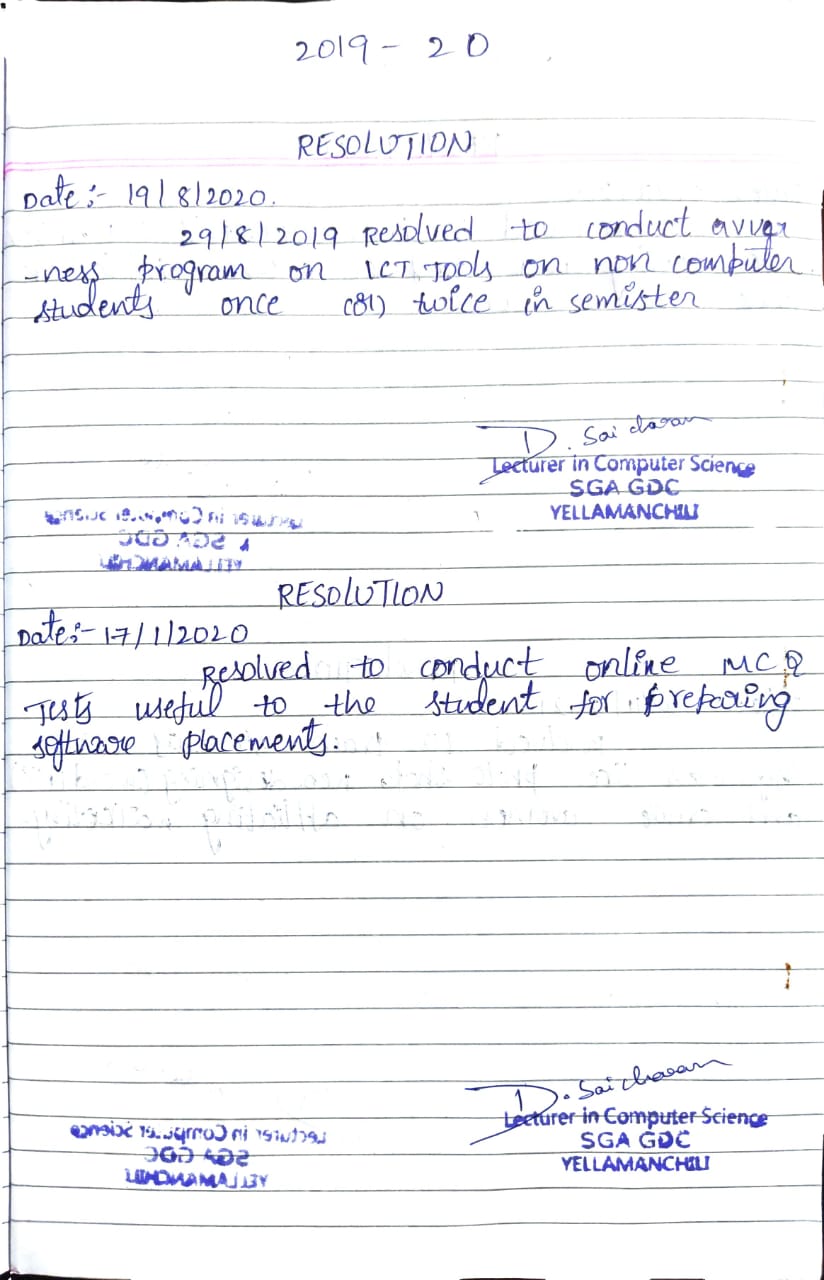 2019 - 20
RESOLUTION
Date :- 19/8/2020.
29/8/2019 Resolved to conduct avvar
-ness program on ICT Tools on non computer
students once (or) twice in semister
D. Sai charan
Lecturer in Computer Science
SGA GDC
YELLAMANCHILI
Lecturer in Computer Science
SGA GDC
YELLAMANCHILI
RESOLUTION
Date:- 17/1/2020
Resolved to conduct online MCQ
Tests useful to the student for preparing
software placements.
D. Sai charan
Lecturer in Computer Science
SGA GDC
YELLAMANCHILI
Lecturer in Computer Science
SGA GDC
YELLAMANCHILI